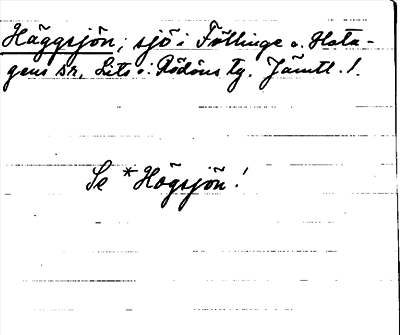 Häggsjön, sjö i Föllinge o. Hota-
gens sn, Lits o. Rödöns tg. Jämtl. l.
Se *Högsjön!